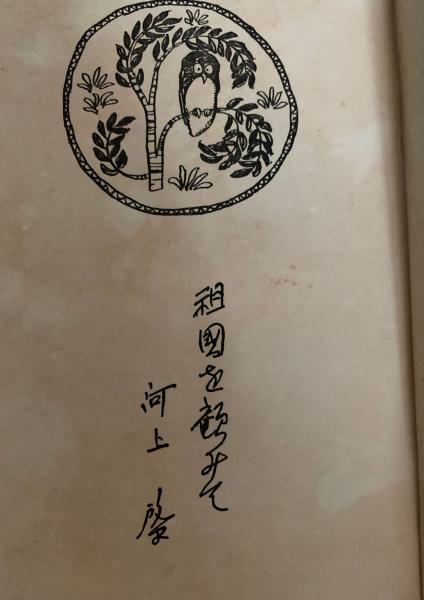 祖國を顧みて
河上 肇